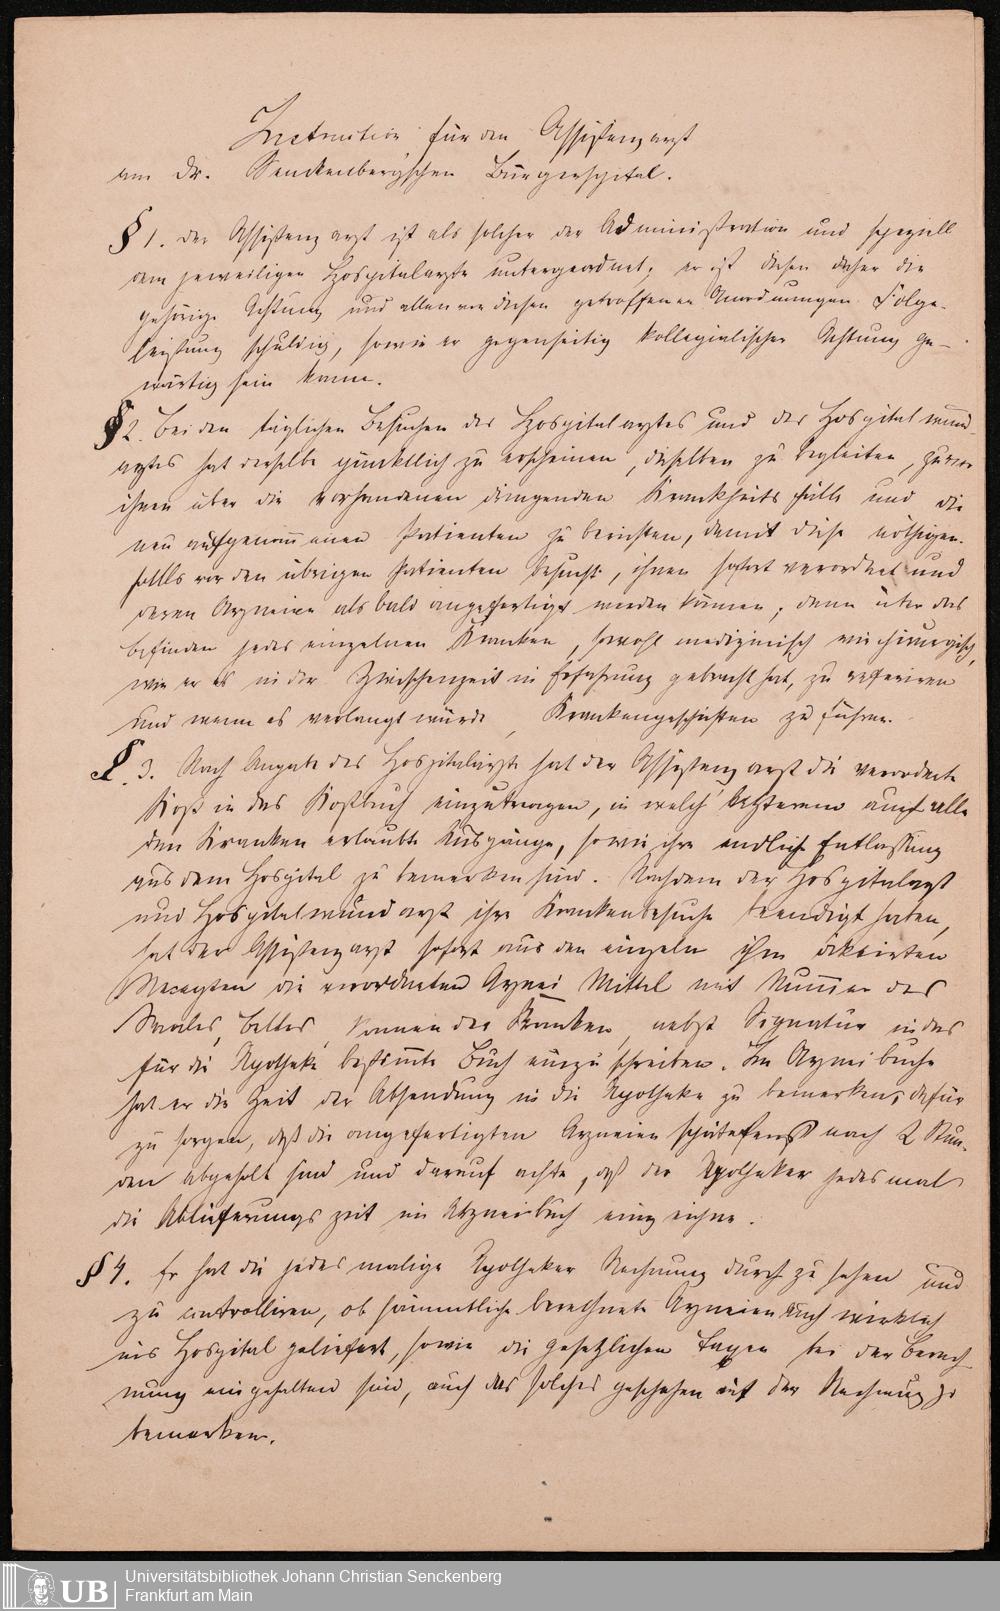 Instruction für den Assistenzarzt
am Dr. Senckenberg'schen Bürgerspital.
§ 1. Der Assistenzarzt ist als solcher der Administration und speziell
dem jeweiligen Hospitalarzte untergeordnet; er ist diesen daher die
gehörige Achtung und allen von diesen getroffenen Anordnungen Folge-
leistung schuldig, sowie er gegenseitig kollegialischer Achtung ge-
wärtig sein kann.
§ 2. Bei den täglichen Besuchen des Hospitalarztes und des Hospitalwund-
arztes hat derselbe pünktlich zu erscheinen, dieselben zu begleiten, zuvor
ihnen über die vorhandenen dringenden Krankheitsfälle und die
neu aufgenommenen Patienten zu berichten, damit diese nöthigen-
falls vor den übrigen Patienten besucht, ihnen sofort verordnet und
deren Arzneien alsbald angefertigt werden können; dann über das
Befinden jedes einzelnen Kranken, sowohl medizinisch wie chirurgisch,
wie er es in der Zwischenzeit in Erfahrung gebracht hat, zu referiren
und wenn es verlangt würde, Krankengeschichten zu führen.
§. 3. Nach Angabe des Hospitalarzts hat der Assistenzarzt die verordnete
Kost in das Kostbuch einzutragen, in welch' letzterem auch alle
den Kranken erlaubte Ausgänge, sowie ihre endliche Entlassung
aus dem Hospital zu bemerken sind. Nachdem der Hospitalarzt
und Hospitalwundarzt ihre Krankenbesuche beendigt haben,
hat der Assistenzarzt sofort aus den einzeln ihm diktirten
Recepten die verordneten Arznei Mittel mit Nummer des
Saales, Bettes, Namen der Kranken, nebst Signatur in das
für die Apotheke bestimmte Buch einzuschreiben. Im Arzneibuche
hat er die Zeit der Absendung in die Apotheke zu bemerken, dafür
zu sorgen, daß die angefertigten Arzneien spätestens nach 2 Stun-
den abgeholt sind und darauf achte, daß der Apotheker jedesmal
die Ablieferungszeit im Arzneibuch einzeichne.
§ 4. Er hat die jedesmalige Apotheker Rechnung durch zu sehen und
zu controlliren, ob sämmtliche berechnete Arzneien auch wirklich
ins Hospital geliefert, sowie die gesetzlichen Taxen bei der Berech-
nung eingehalten sind, auch das solches geschehen auf der Rechnung zu
bemerken.
UB
Universitätsbibliothek Johann Christian Senckenberg
Frankfurt am Main